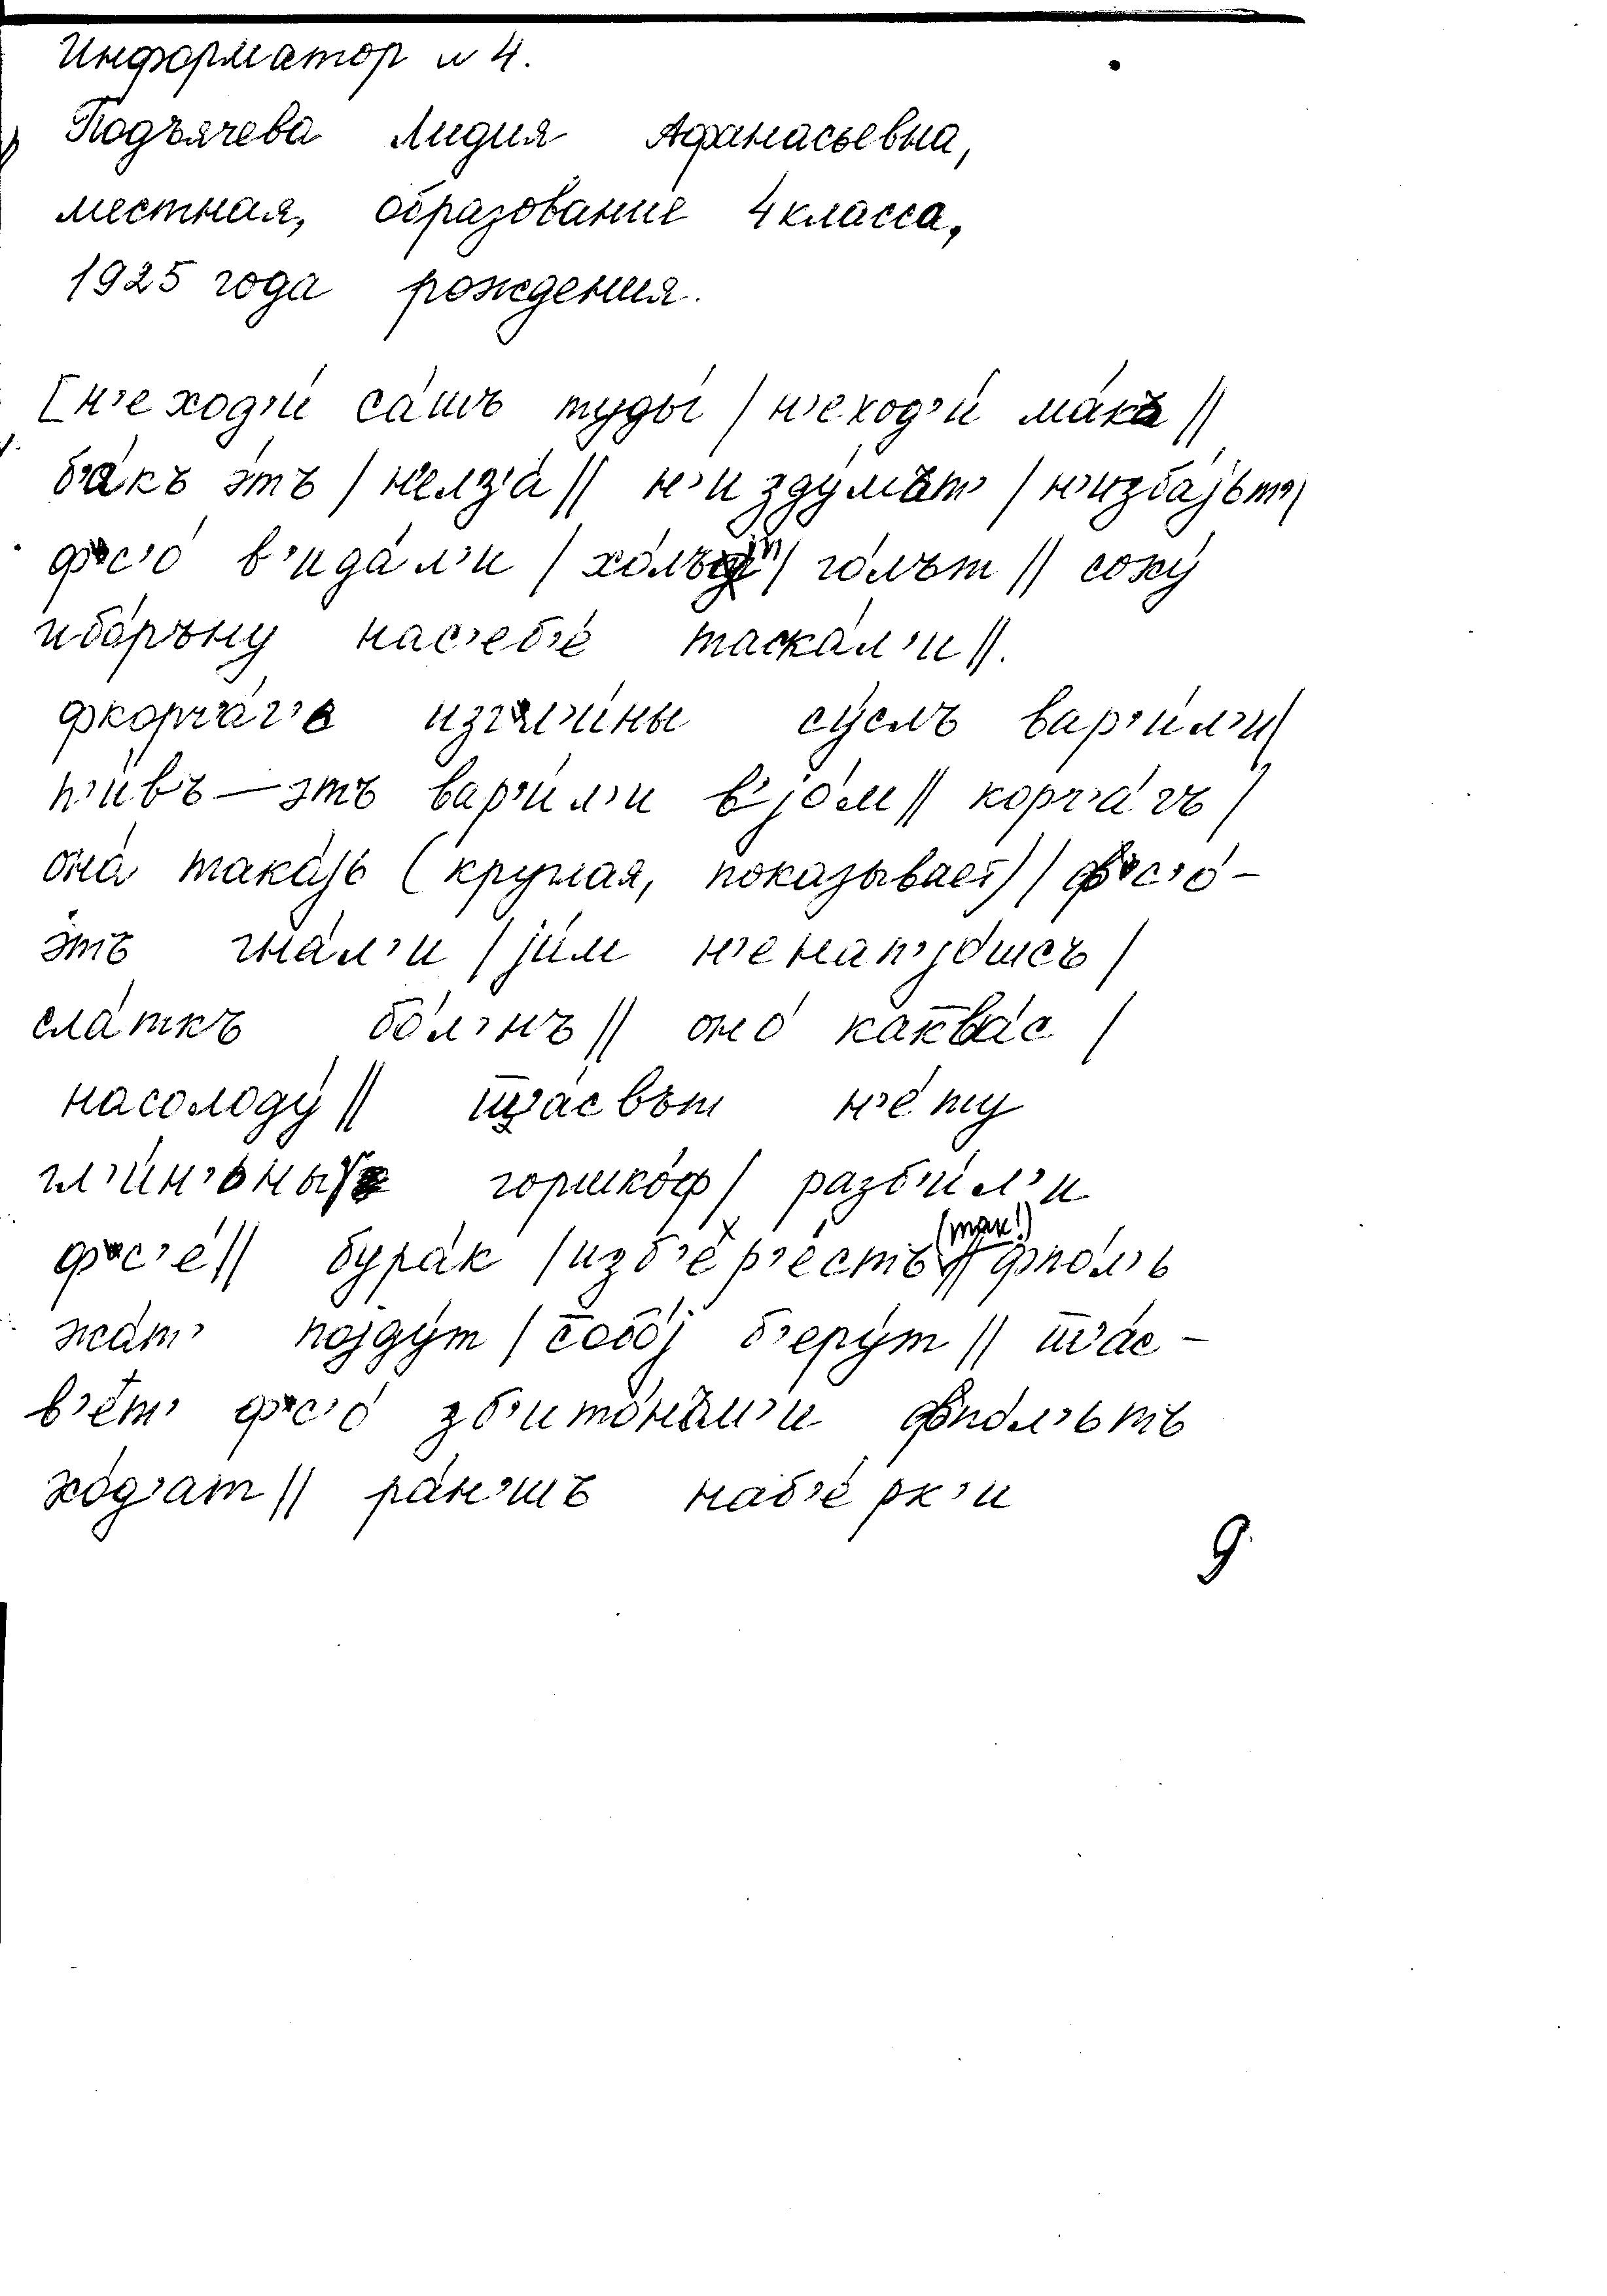 Информатор № 4.
Подъячева Лидия Афанасьевна,
местная, образование 4 класса,
1925 года рождения.
[н'е ход'и́ са́шъ туды́ / н'е ход'и́ ма́къ //
ба́къ э́тъ / н'елз'а́ // н'и зду́мът' / н'избајът' /
фс'о́ в'ида́л'и / хо́лът / го́лът // соху́
ибо́ръну нас'еб'е́ таска́л'и //.
фкорч'а́г'е изгл'и́ны су́слъ вар'и́л'и /
п'и́въ — э́тъ вар'и́л'и в'јо́м // корч'а́гъ /
она́ така́јь (круглая, показывает) / фс'о́ -
э́тъ гна́л'и / ји́м н'енап'јо́шсъ /
сла́ткъ бо́л'нъ // оно́ каква́с /
насолоду́ // тш'а́свът н'е́ту
гл'и́н'ьных горшко́ф / разб'и́л'и
фс'е́ // бура́к / изб'ер'е́стъ (так!) // фпо́л'ь
жа́т' појду́т / собо́ј б'еру́т // тш'а́с -
в'е́т' фс'о́ зб'ито́нъм'и фпо́л'ьтъ
хо́д'ат // ра́н'шъ наб'е́рк'и
9